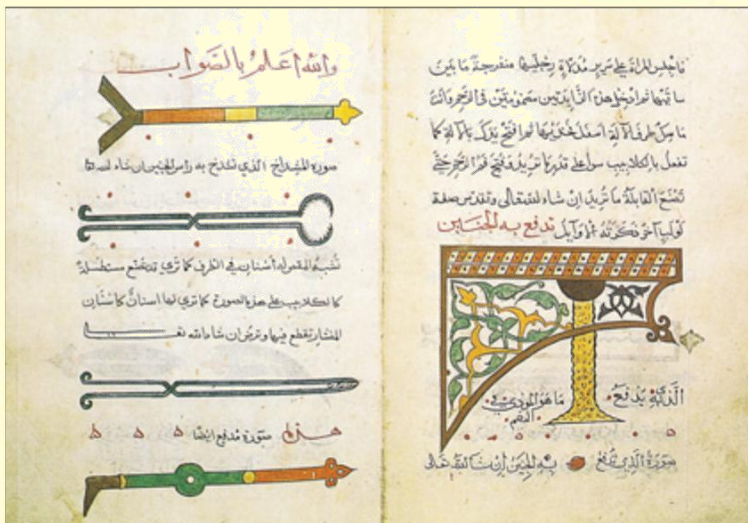 فاجلس المراة على سرير مدلاة رجليها منفرجة ما بين
ساقيها ثم ادخل هذه الزايدتين مضمومتين في الرحم وانت
ماسك طرف الالة اسفل فخذيها ثم افتح يدك بالالة كما
تفعل بالكلاليب سوا على قدر ما تريد فتح فم الرحم حتى
تصنع القابلة ما تريد ان شاء الله تعالى وهذه صفة
لولب اخر ذكرته الاوايل تدفع به الجنين
الذي يدفع
ما هو المؤذي في
الفم
صورة الذي تدفع به الجنين ان شا الله تعالى
والله اعلم بالصواب
صورة المشداخ الذي تشدخ به راس الجنين ان شاء الله
تشبه المقص له أسنان في الطرف كما ترى وقد تصنع مستطيلة
كالكلاليب على هذه الصورة كما ترى لها اسنان كاسنان
المنشار تقطع فيها وترض ان شاء الله تعالى
هذه صورة مدفع ايضا